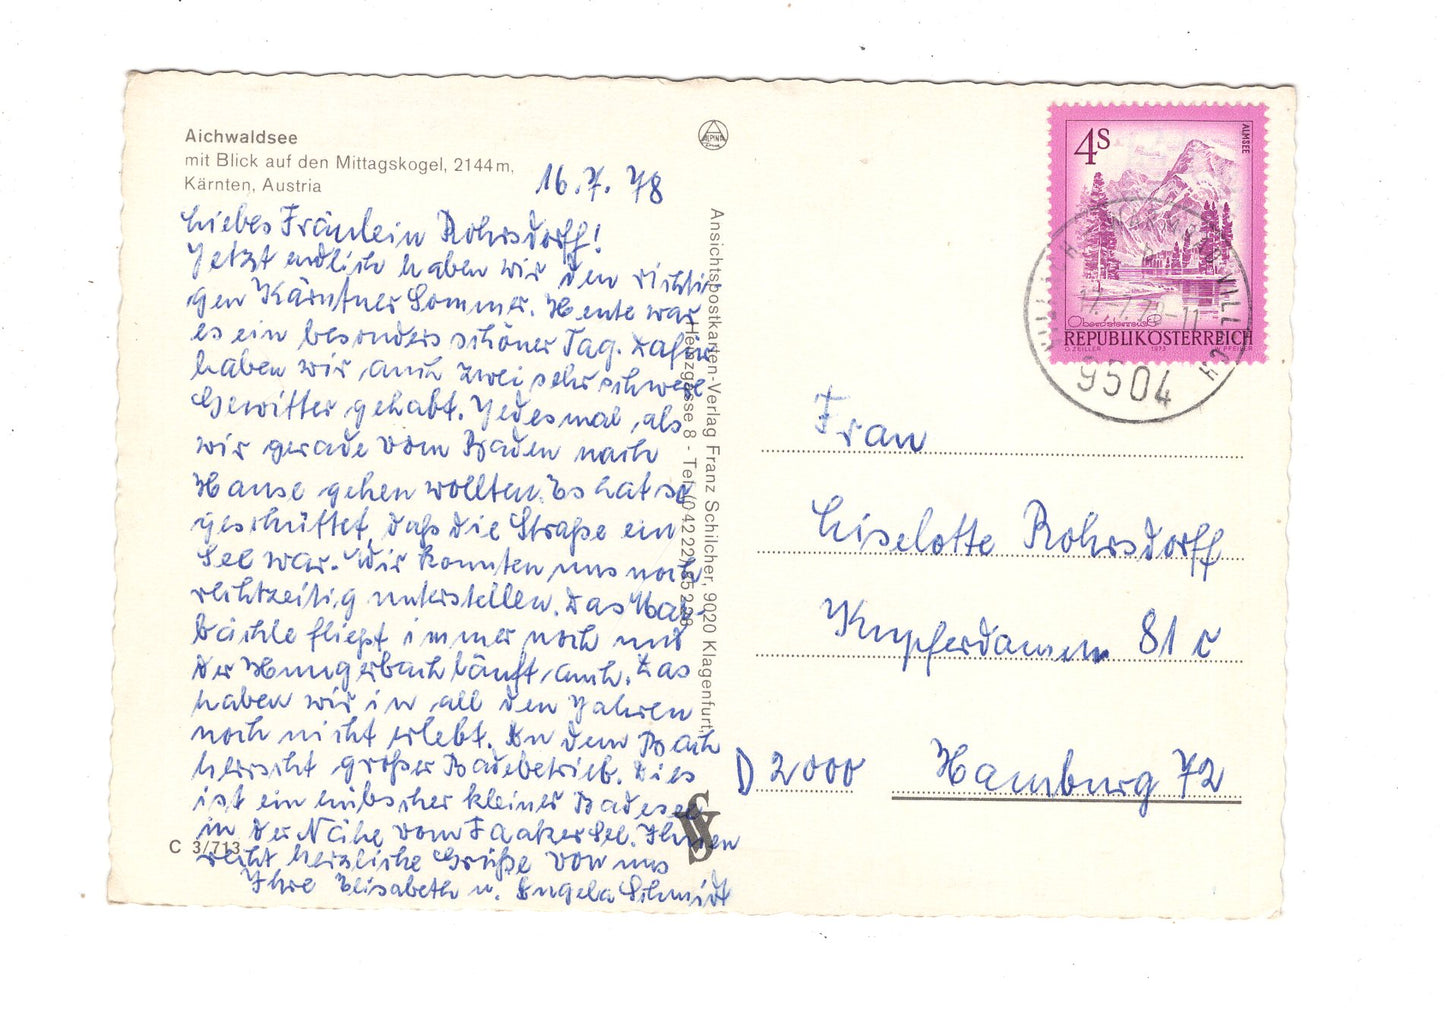 Aichwaldsee
mit Blick auf den Mittagskogel, 2144 m,
Kärnten, Austria
16.7.78
Liebes Fräulein Rohrsdorff!
Jetzt endlich haben wir den richti-
gen Kärntner Sommer. Heute war
es ein besonders schöner Tag. Dafür
haben wir auch zwei sehr schwere
Gewitter gehabt. Jedesmal, als
wir gerade vom Baden nach
Hause gehen wollten. Es hat so
geschüttet, daß die Straße ein
See war. Wir konnten uns noch
rechtzeitig unterstellen. Das
bächle fließt immer noch und
der Hungerbach läuft auch. Das
haben wir in all den Jahren
noch nicht erlebt. An dem Bach
herrscht großer Badebetrieb. Dies
ist ein hübscher kleiner Badesee
in der Nähe vom Faakersee. Ihnen
recht herzliche Grüße von uns
Ihre Elisabeth u. Angela Schmidt
C 3/713
ALPINA
Ansichtspostkarten-Verlag Franz Schilcher, 9020 Klagenfurt,
Herbzgasse 8 - Tel. (0 42 22)
4S
ALMSEE
Oberösterreich
REPUBLIK ÖSTERREICH
G. ZEILLER 1973 W. PFEILER
VILLACH
17.-7.78-11
9504
Frau
Liselotte Rohrsdorff
Kupferdamm 81 c
D 2000 Hamburg 72